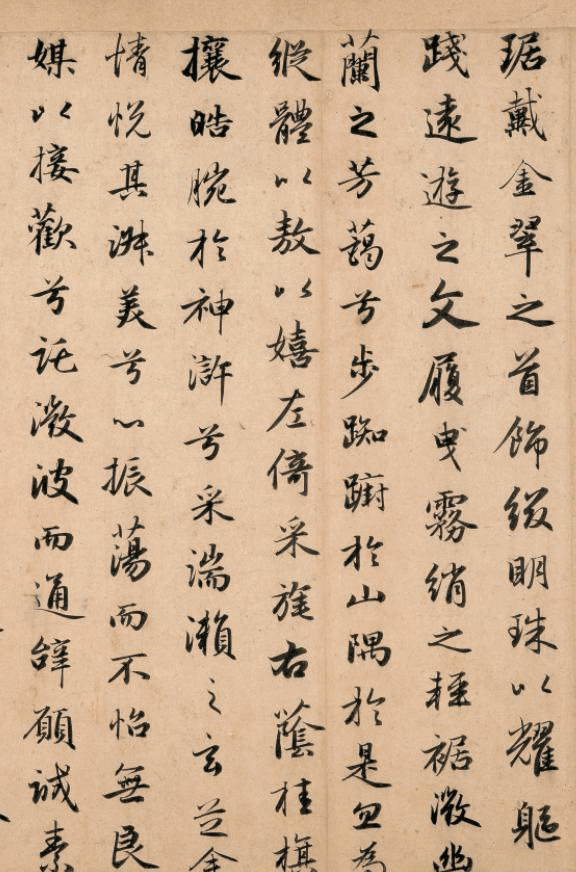 琚戴金翠之首飾綴明珠以耀軀
踐遠遊之文履曳霧綃之輕裾微幽
蘭之芳藹兮步踟躕於山隅於是忽焉
縱體以敖以嬉左倚采旄右蔭桂旗
攘皓腕於神滸兮采湍瀨之玄芝余
情悅其淑美兮心振蕩而不怡無良
媒以接歡兮託微波而通辭願誠素